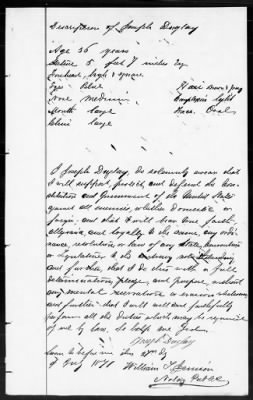 Description of Joseph Duplay
Age 36 years
Stature 5 feet 7 inches Eng
Forehead high & square
Eyes Blue
Nose medium
Mouth large
Chin large
Hair
Complexion light
Face Oval
I Joseph Duplay, do solemnly swear that
I will support, protect and defend the Con-
stitution and Government of the United States
against all enemies, whether domestic or
foreign and that I will bear true faith,
allegiance and loyalty to the same, any ordi-
nance, resolution or law of any State, Convention
or Legislature to the contrary notwithstanding
and further, that I do this with a full
determination, pledge, and purpose, without
any mental reservation or evasion whatsoever
and further that I will well and faithfully
perform all the duties which may be required
of me by law. So help me God.
Joseph Duplay
Sworn to before me this
of July
William
Notary Public